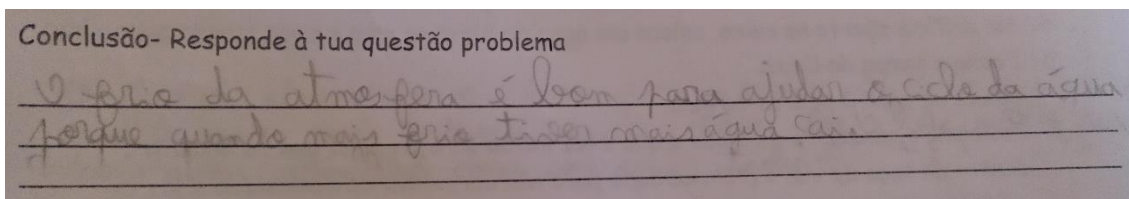 Conclusão- Responde à tua questão problema
O frio da atmosfera é bom para ajudar o ciclo da água
porque quando mais frio tiver mais água cai.